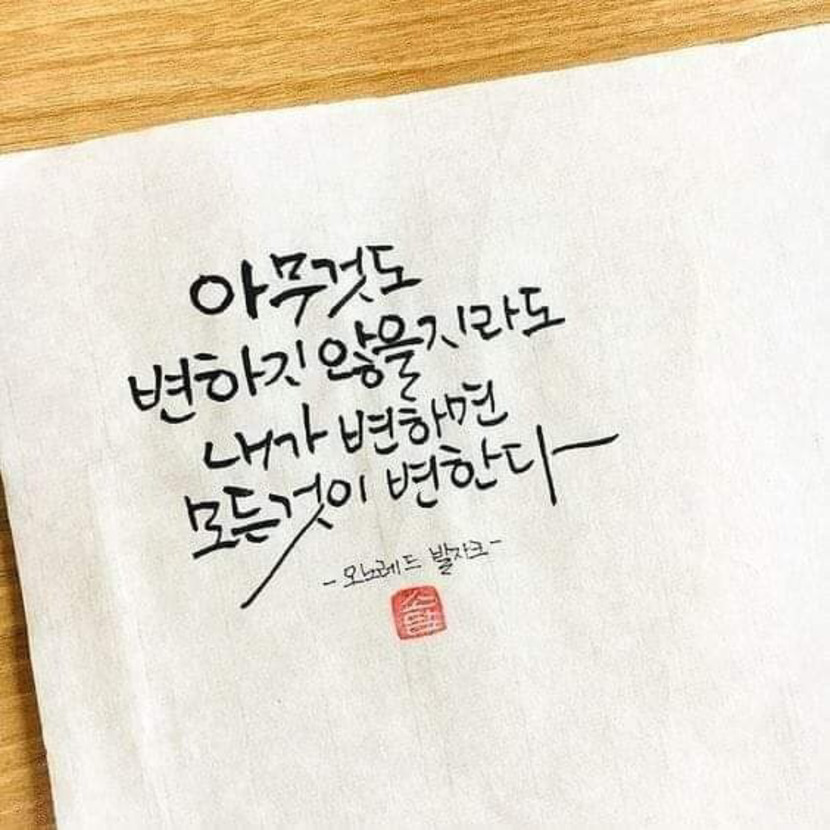 아무것도
변하지 않을지라도
내가 변하면
모든것이 변한다
- 오노레드 발자크 -